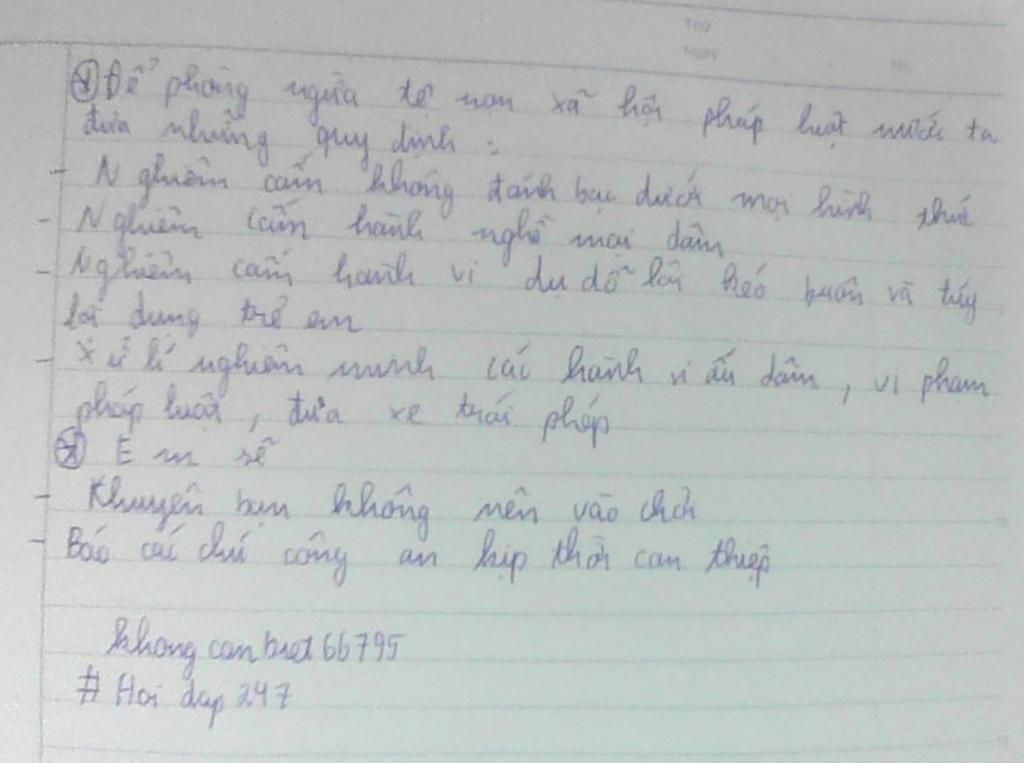 Thứ
Ngày
No.
⊛ Để phòng ngừa tệ nạn xã hội pháp luật nước ta
đưa những quy định :
- Nghiêm cấm không đánh bạc dưới mọi hình thức
- Nghiêm cấm hành nghề mại dâm
- Nghiêm cấm hành vi dụ dỗ lôi kéo buôn và
lợi dụng trẻ em
- Xử lí nghiêm minh các hành vi ấu dâm, vi phạm
pháp luật, đưa xe trái phép
⊛ Em sẽ
- Khuyên bạn không nên vào chơi
- Báo các chú công an kịp thời can thiệp
khong can biet 66795
# Hoi dap 247